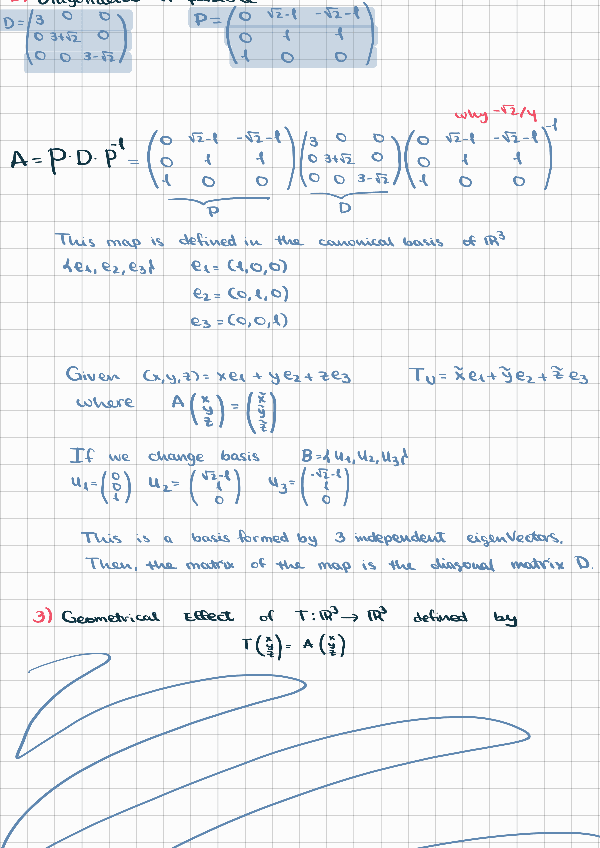 2) Diagonalize if possible
D = (3 0 0
0 3+√2 0
0 0 3-√2)
P = (0 √2-1 -√2-1
0 1 1
1 0 0)
why -√2/4
A = P · D · P⁻¹ = (0 √2-1 -√2-1
0 1 1
1 0 0) (3 0 0
0 3+√2 0
0 0 3-√2) (0 √2-1 -√2-1
0 1 1
1 0 0)⁻¹
P D
This map is defined in the canonical basis of ℝ³
{e1, e2, e3} e1 = (1,0,0)
e2 = (0,1,0)
e3 = (0,0,1)
Given (x,y,z) = xe1 + ye2 + ze3 Tv = x̃e1 + ỹe2 + z̃e3
where A (x y z) = (x̃ ỹ z̃)
If we change basis B = {u1, u2, u3}
u1 = (0 0 1) u2 = (√2-1 1 0) u3 = (-√2-1 1 0)
This is a basis formed by 3 independent eigenvectors.
Then, the matrix of the map is the diagonal matrix D.
3) Geometrical Effect of T: ℝ³ → ℝ³ defined by
T (x y z) = A (x y z)